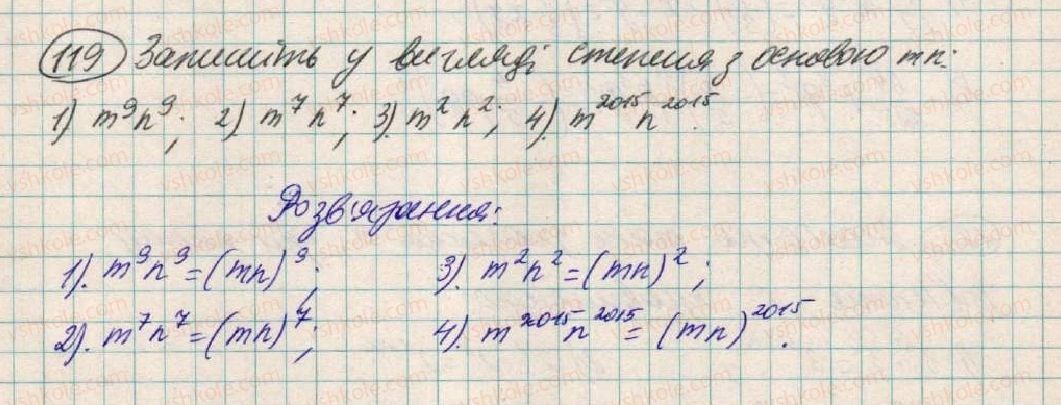 119 Запишіть у вигляді степеня з основою mn:
1) m⁹n⁹; 2) m⁷n⁷; 3) m²n²; 4). m²⁰¹⁵n²⁰¹⁵.
Розв'язання:
1). m⁹n⁹=(mn)⁹; 3). m²n²=(mn)²;
2). m⁷n⁷=(mn)⁷; 4). m²⁰¹⁵n²⁰¹⁵=(mn)²⁰¹⁵.
vshkole.com